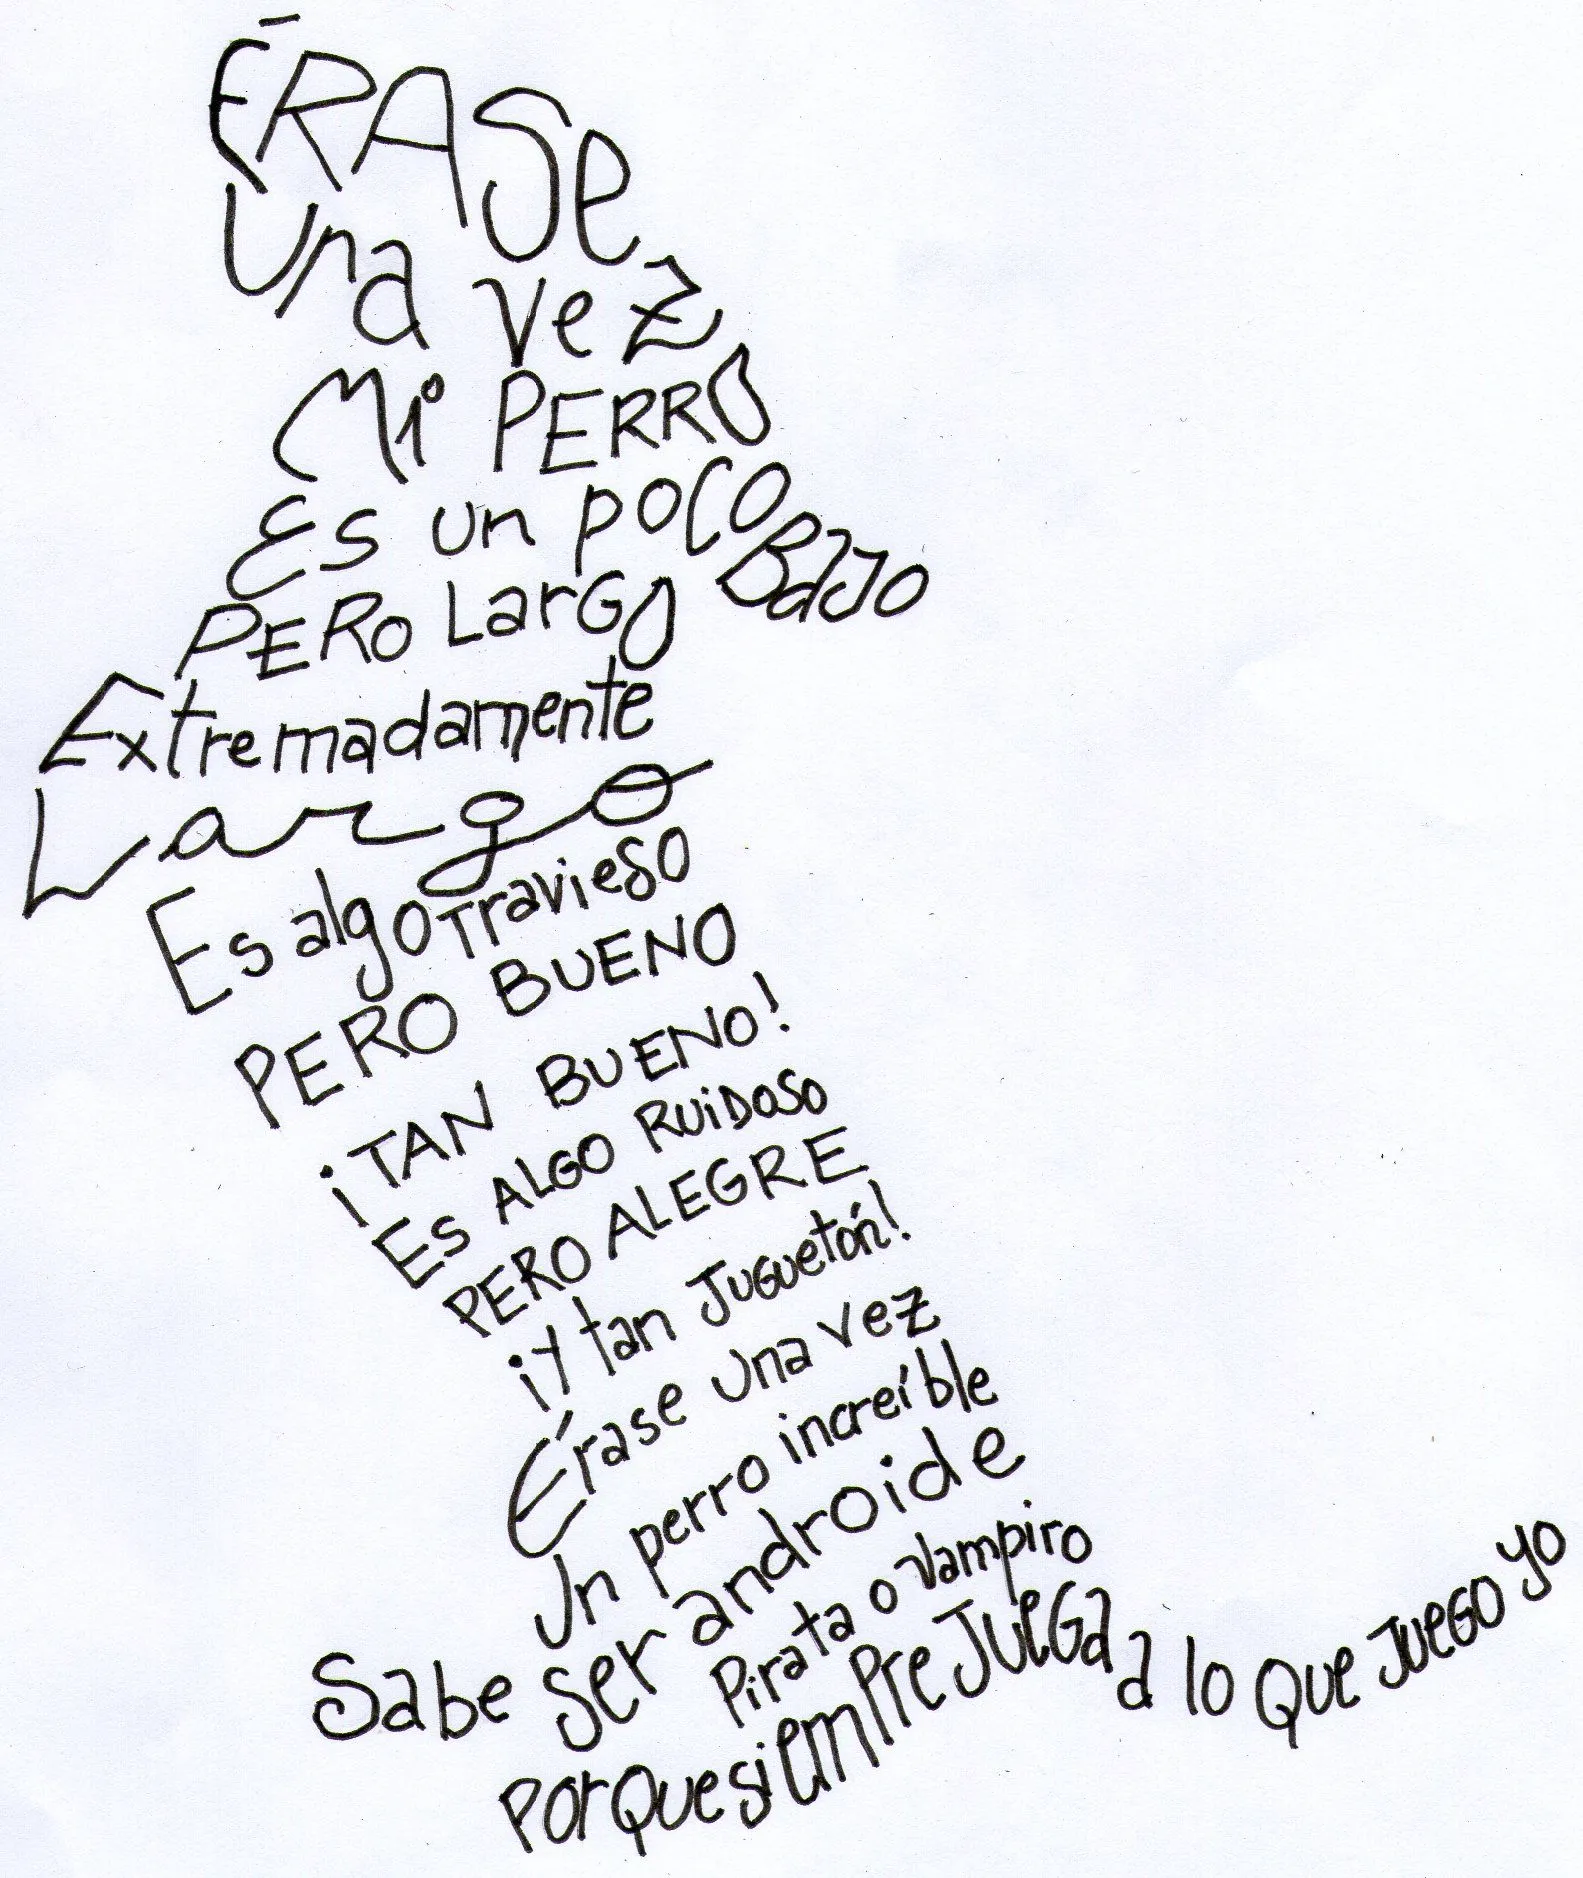 ÉRASe
Una vez
Mi PERRO
Es un poco BaJo
PERO LarGO
Extremadamente
Largo
Es algo Travieso
PERO BUENO
¡TAN BUENO!
Es ALGO RUiDOSO
PERO ALEGRE
¡Y tan JuGuetón!
Érase una vez
Un perro increíble
Sabe ser androide
Pirata o Vampiro
PorQue siemPre JueGa a lo Que JueGo yo